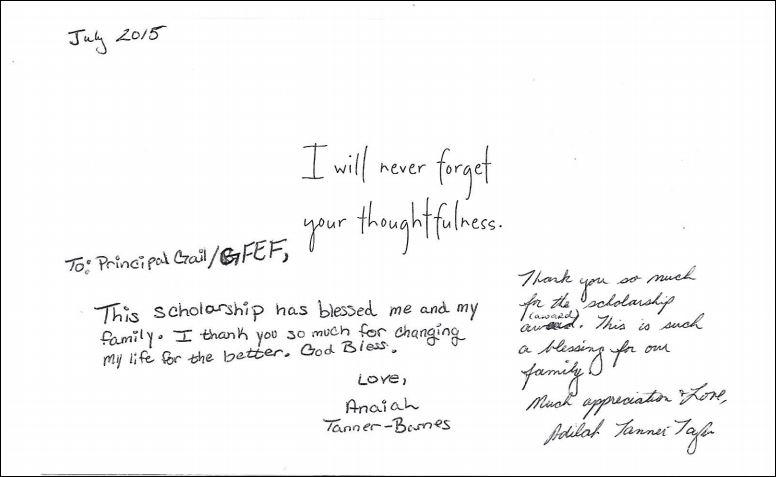 July 2015
I will never forget
your thoughtfulness.
To: Principal Gail/GFEF,
This scholarship has blessed me and my
family. I thank you so much for changing
my life for the better. God Bless.
Love,
Anaiah
Tanner-Barnes
Thank you so much
for the scholarship
(award). This is such
a blessing for our
family.
Much appreciation & Love,
Adilah Tanner